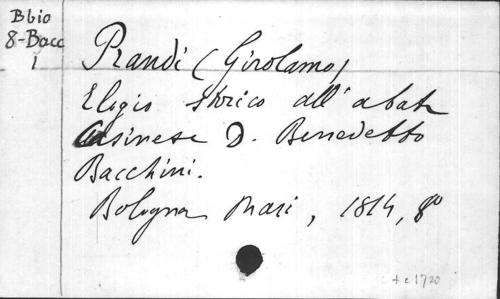 Bbio
8-Bacc
1
Prandi (Girolamo)
Elogio storico all'abate
Casinese D. Benedetto
Bacchini.
Bologna Masi, 1814, 8º
+ c 1720